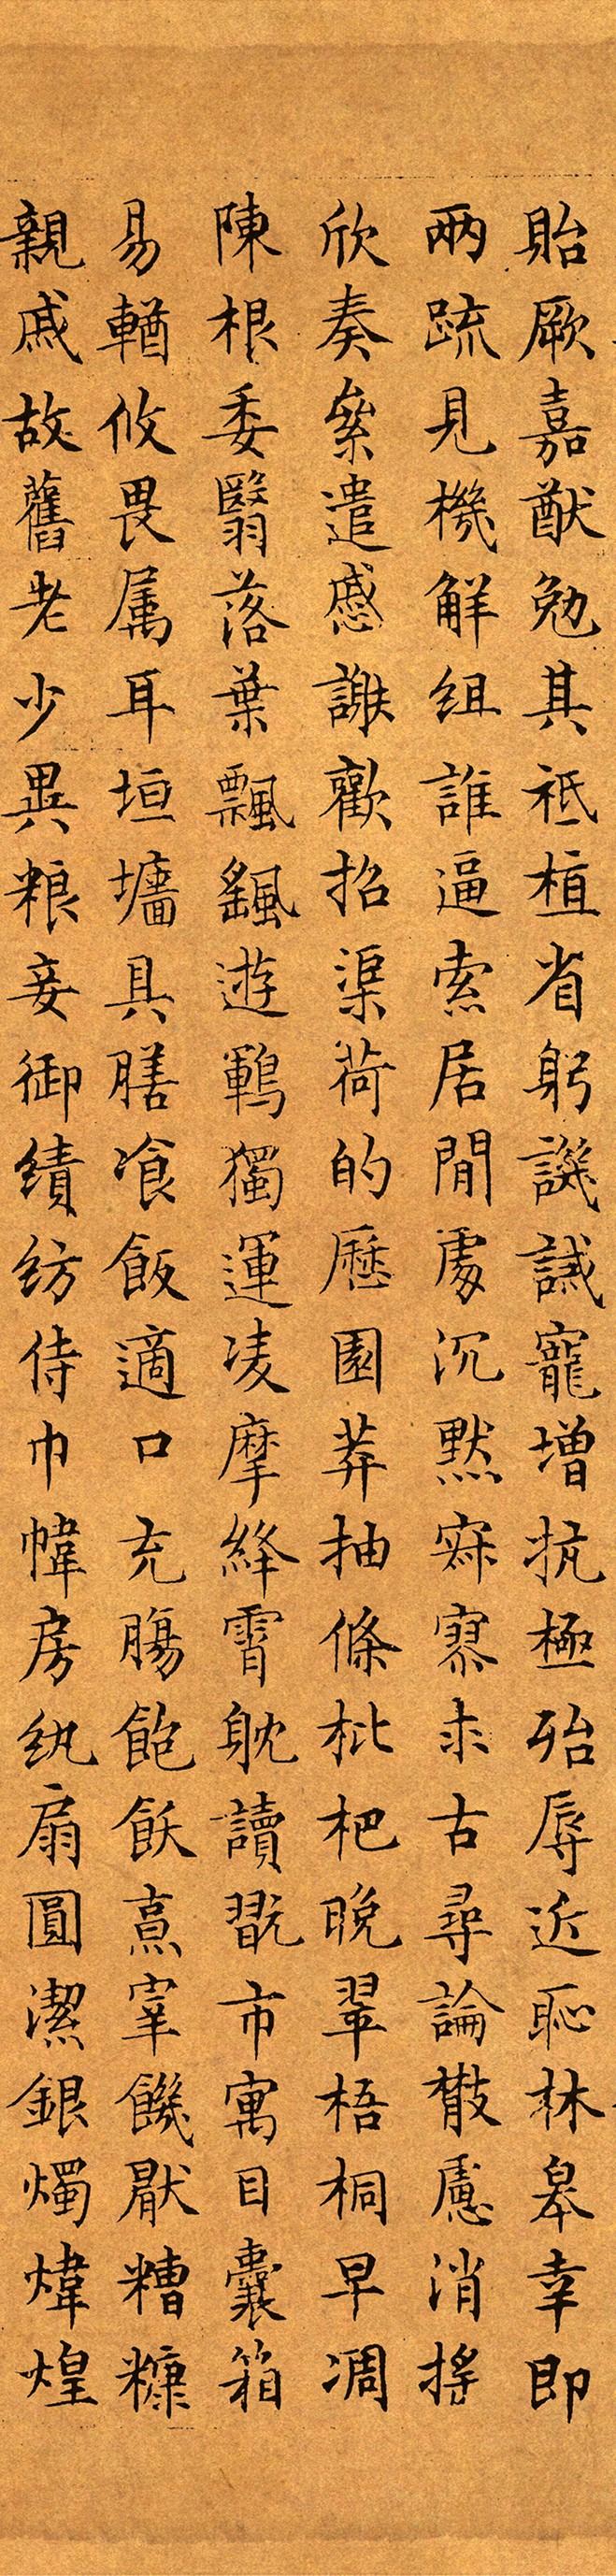 貽厥嘉猷勉其祗植省躬譏誡寵增抗極殆辱近恥林皋幸即
兩疏見機解組誰逼索居閒處沉默寂寥求古尋論散慮消搖
欣奏絫遣慼謝歡招渠荷的歷園莽抽條枇杷晚翠梧桐早凋
陳根委翳落葉飄颻遊鵾獨運凌摩絳霄躭讀翫市寓目囊箱
易輶攸畏属耳垣墻具膳飡飯適口充腸飽飫烹宰饑厭糟糠
親戚故舊老少異粮妾御績紡侍巾幃房紈扇圓潔銀燭煒煌